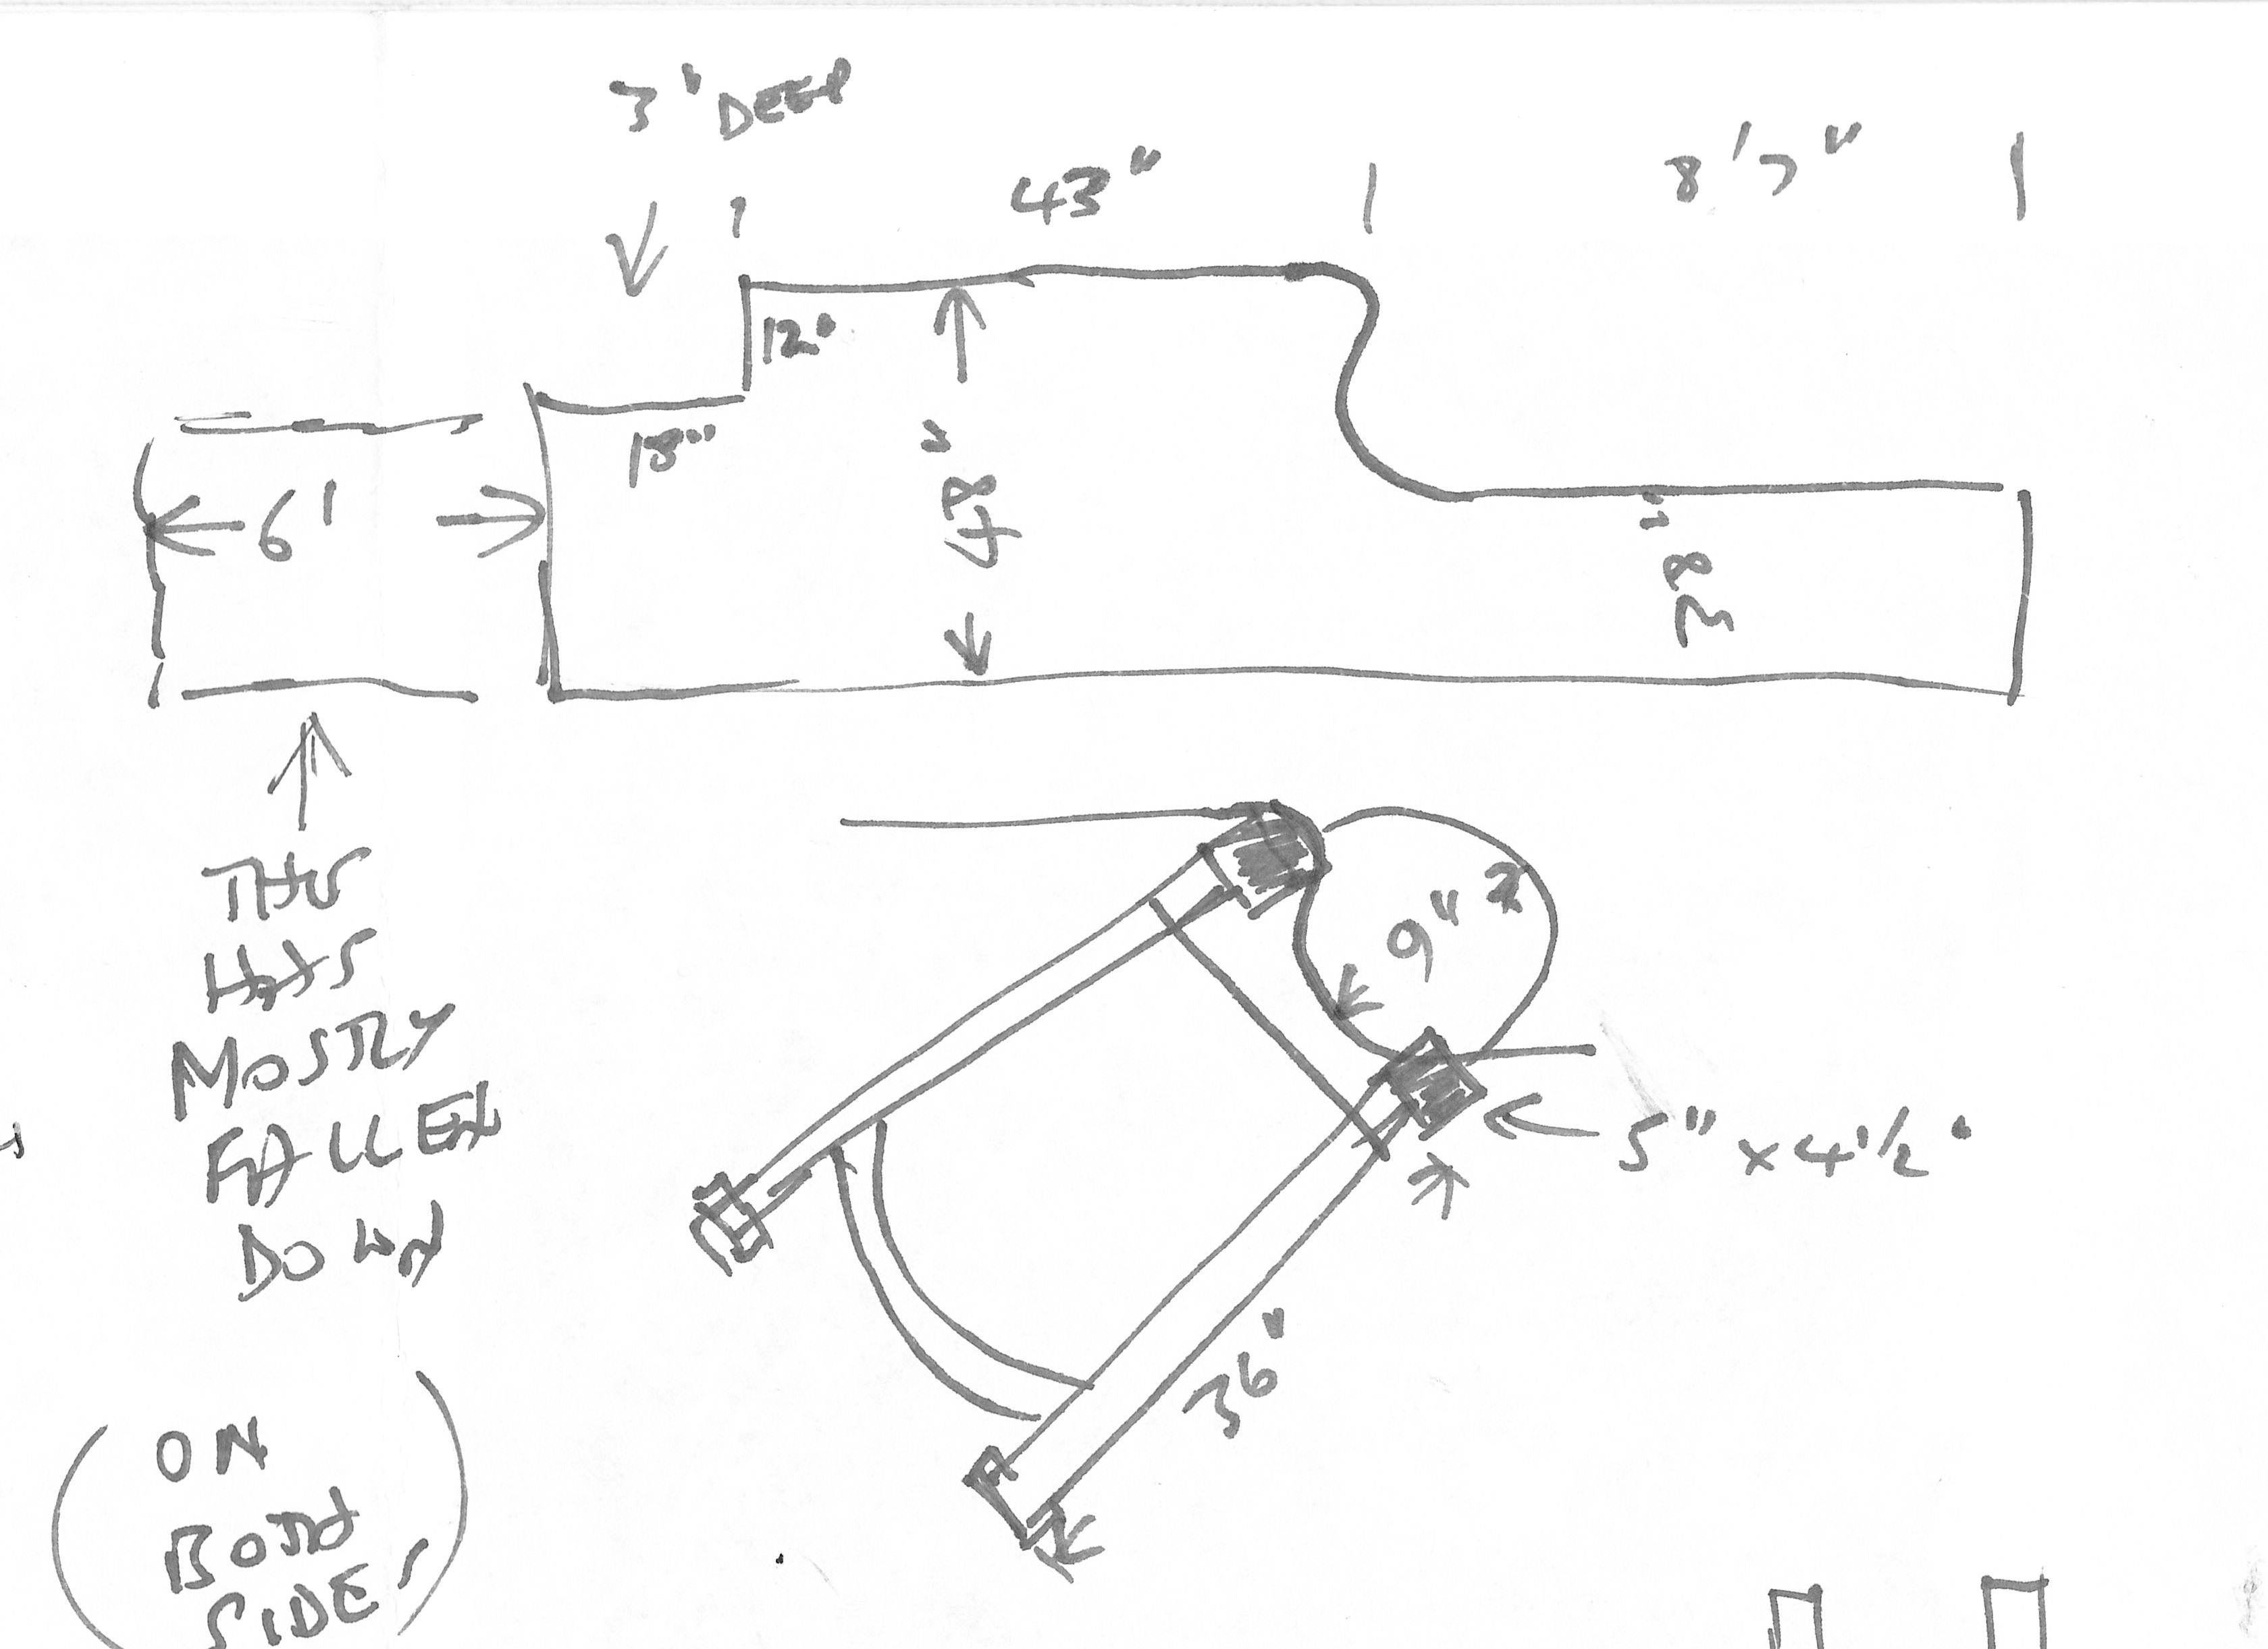 3" DEEP
43"
8'7"
12"
18"
6'
48"
28"
THIS
HAS
MOSTLY
FALLEN
DOWN
9"
5" x 4 1/2"
36"
(ON
BOTH
SIDES)